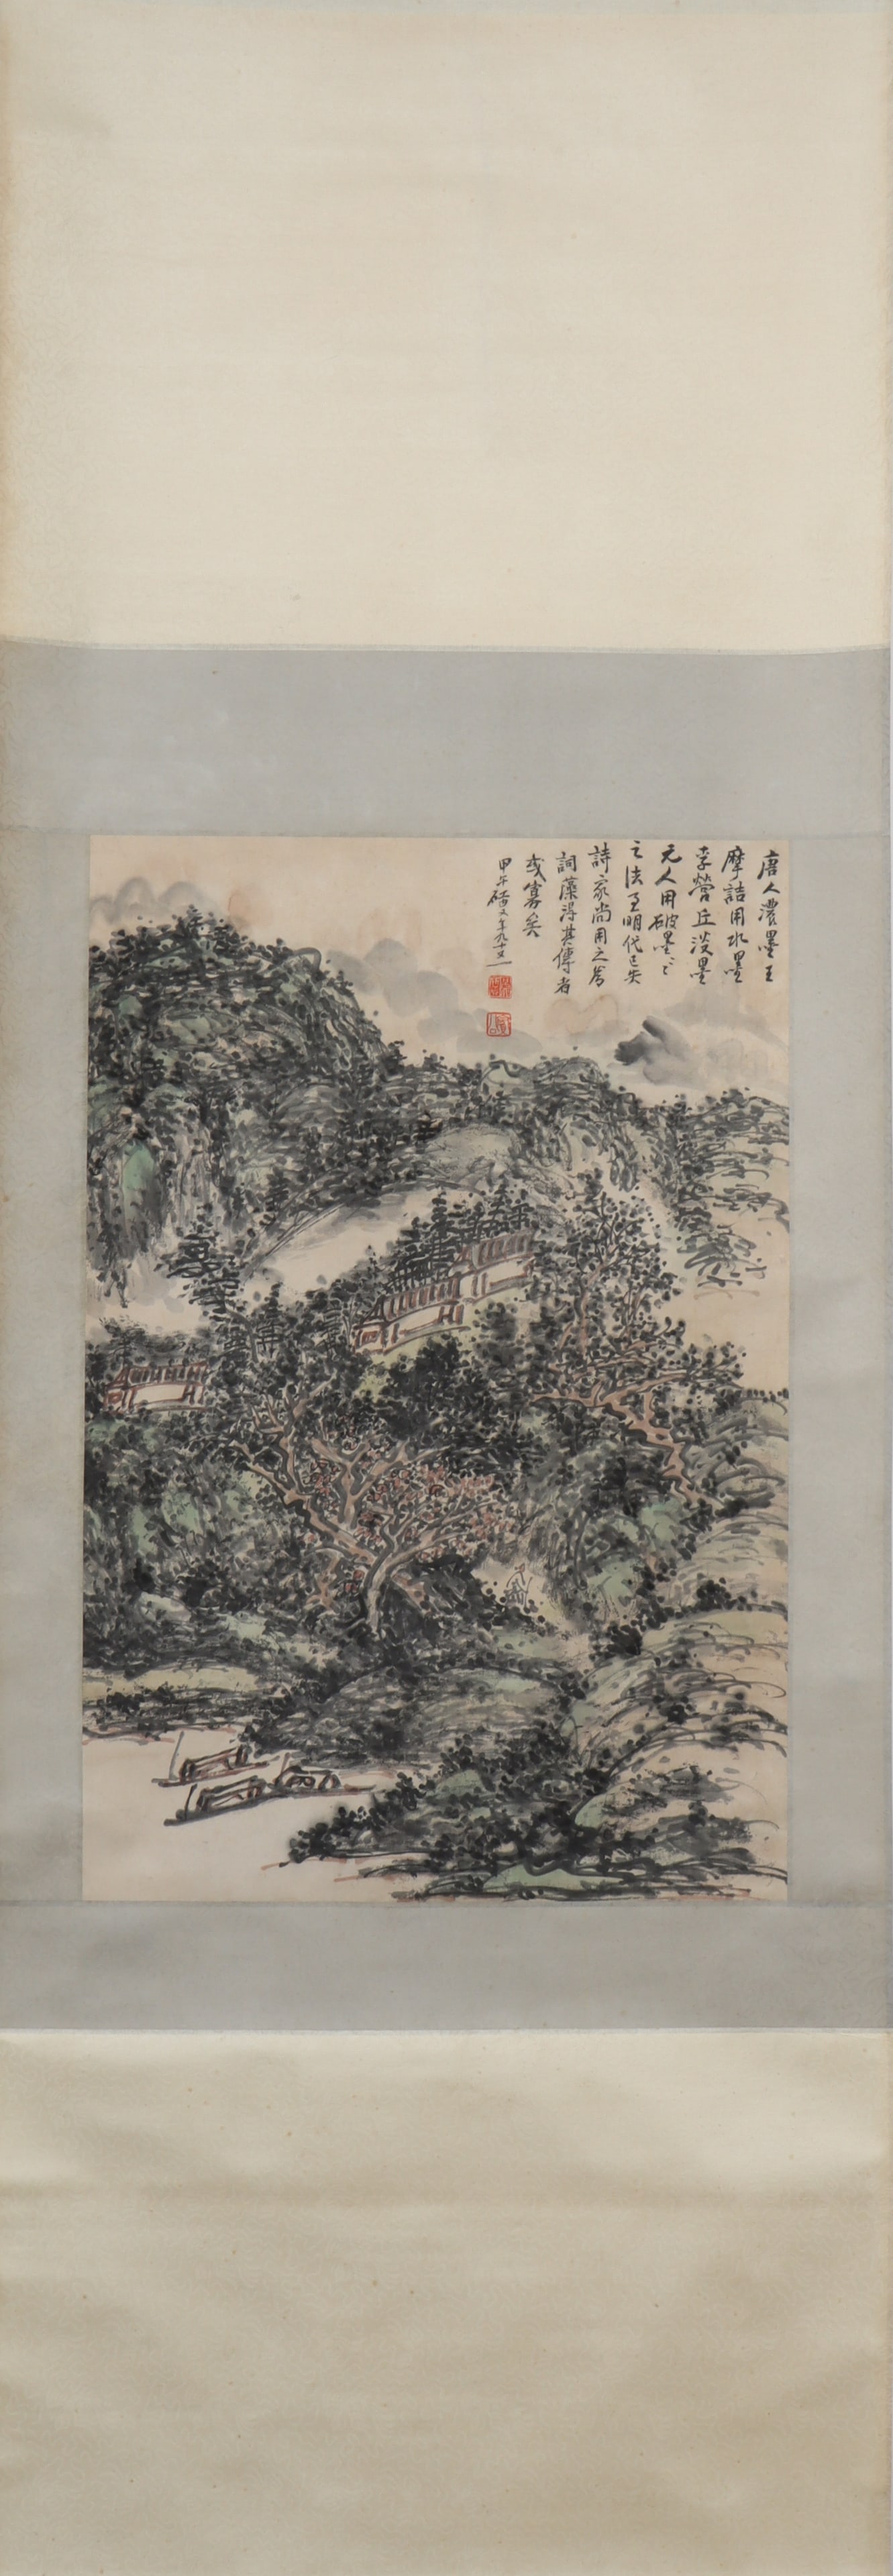 唐人濃墨王
摩詰用水墨
李營丘淡墨
元人用破墨墨
之法至明代已失
詩家尚用之為
詞藻得其傳者
或寡矣
甲午 年九十又一